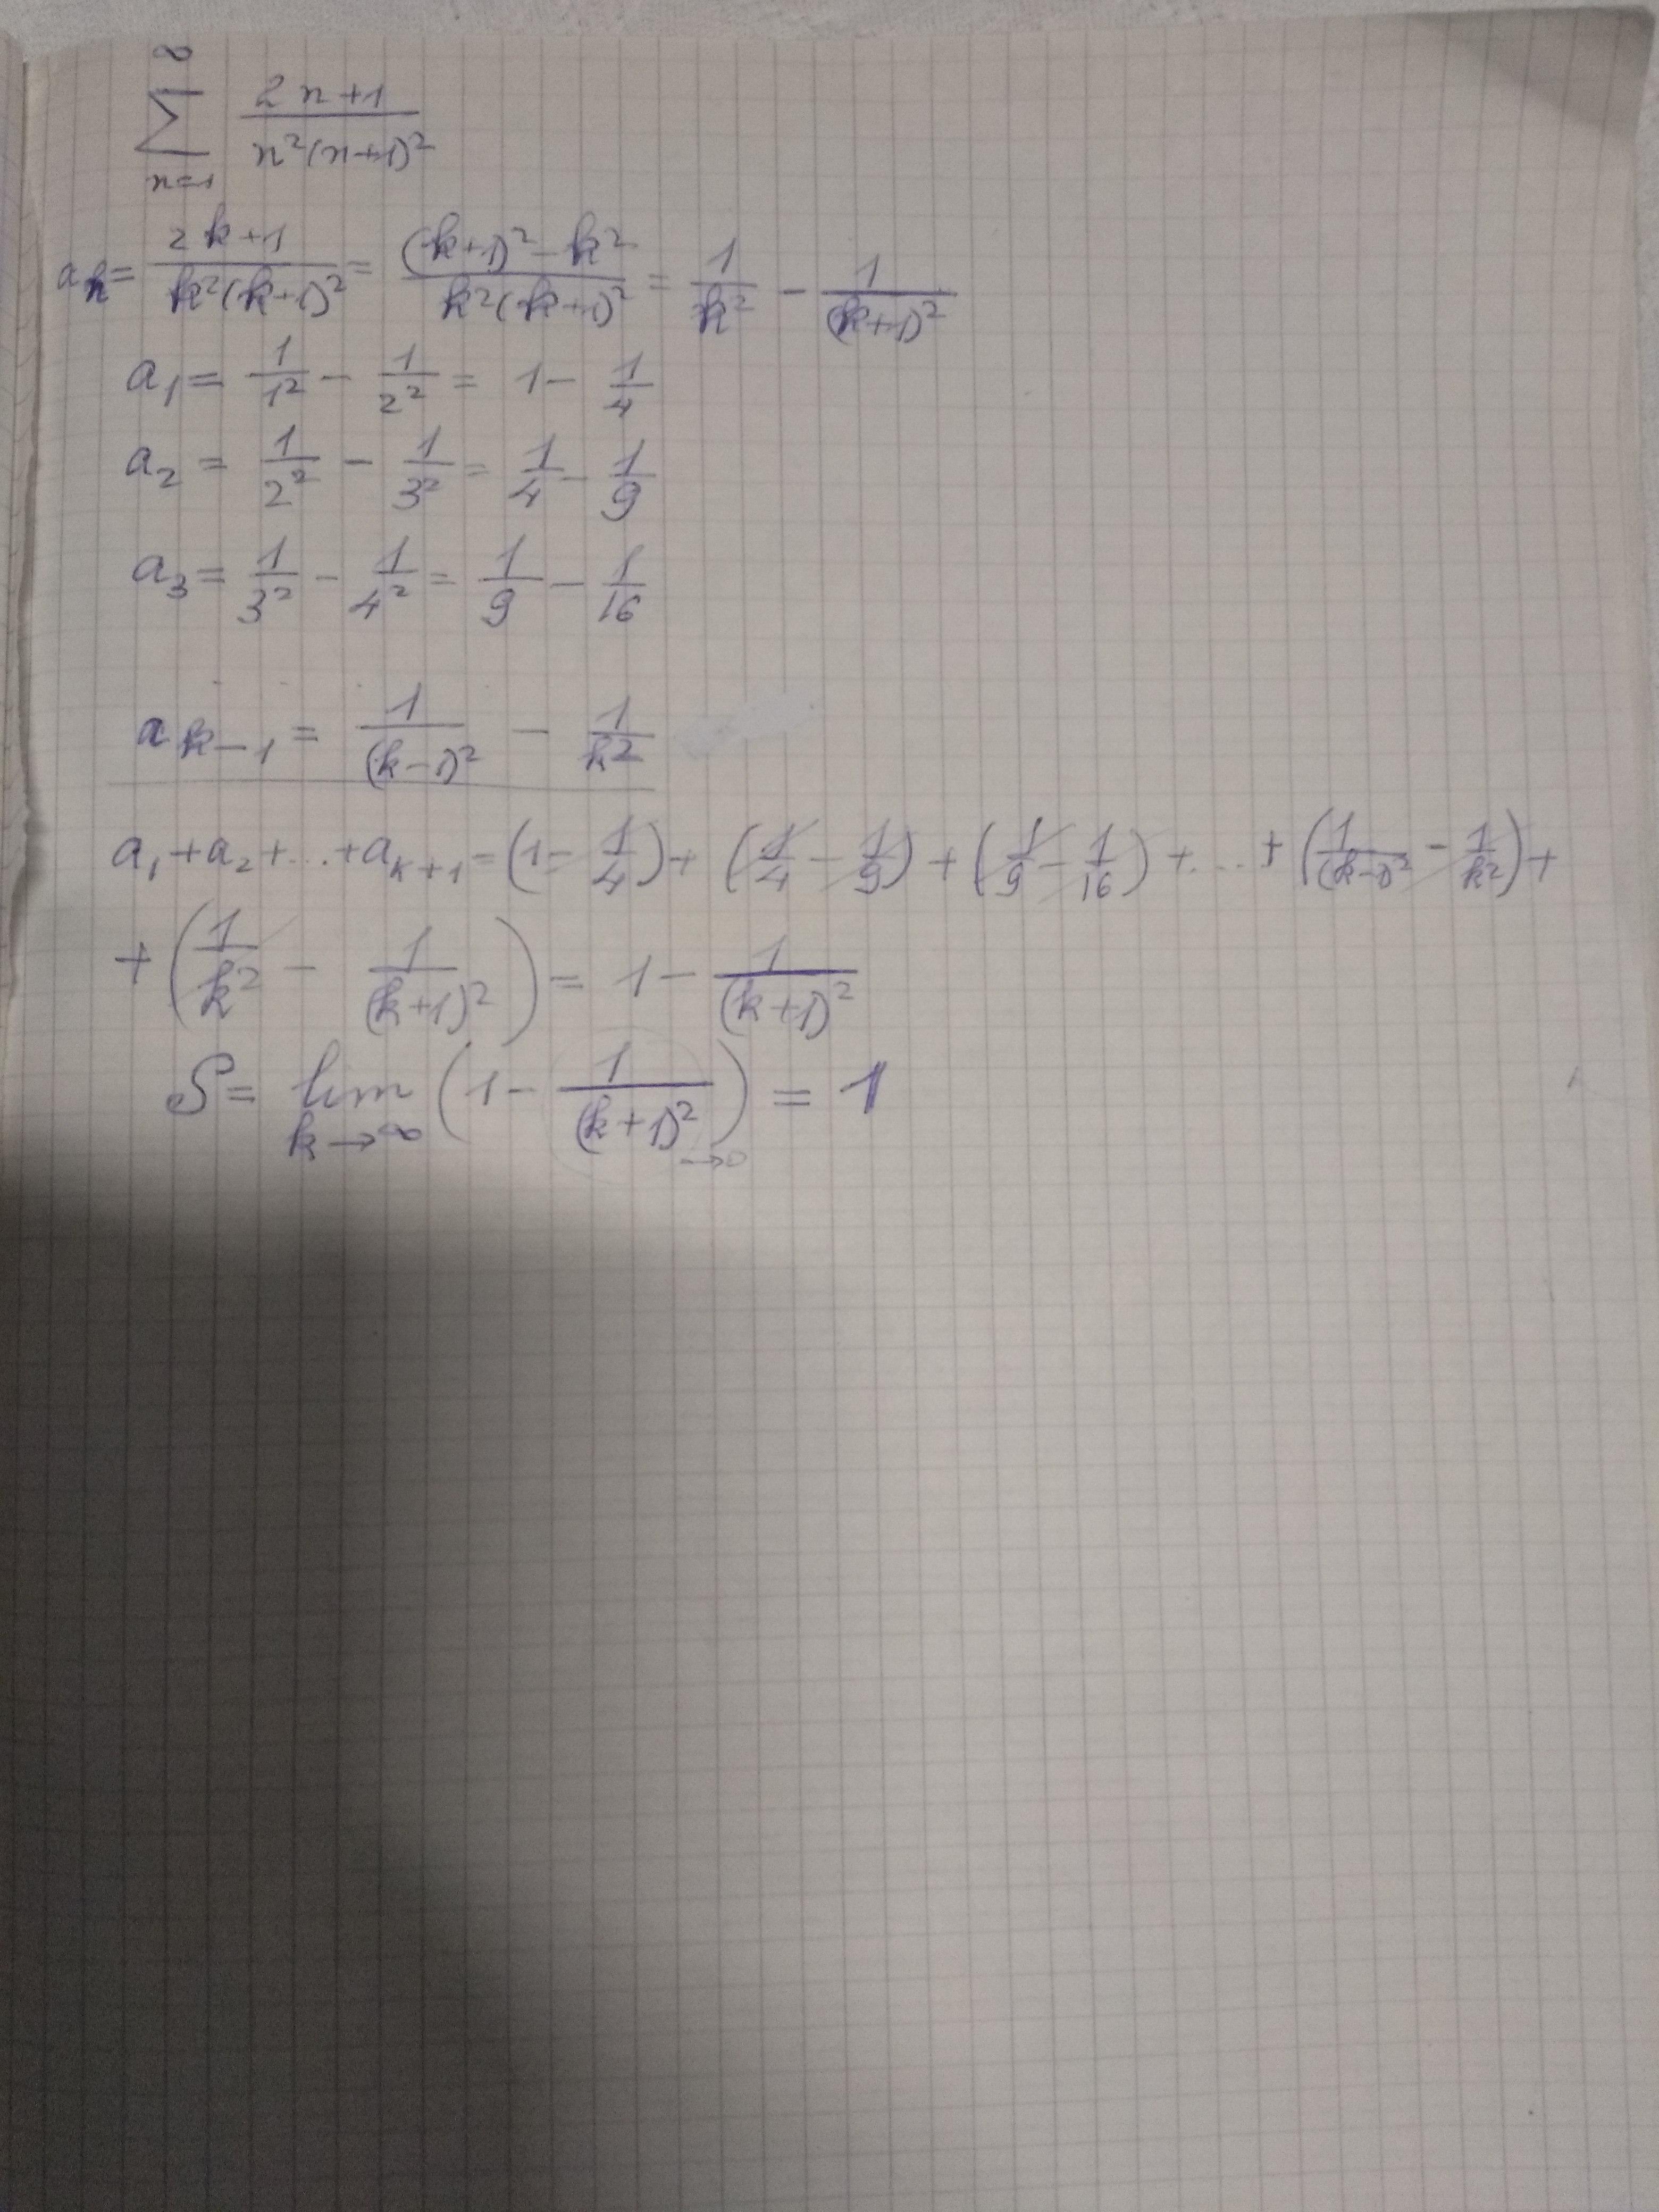 ∞
∑ 2n+1 / n²(n+1)²
n=1
a_k = 2k+1 / k²(k+1)² = (k+1)² − k² / k²(k+1)² = 1/k² − 1/(k+1)²
a₁ = 1/1² − 1/2² = 1 − 1/4
a₂ = 1/2² − 1/3² = 1/4 − 1/9
a₃ = 1/3² − 1/4² = 1/9 − 1/16
a_{k−1} = 1/(k−1)² − 1/k²
a₁+a₂+...+a_{k+1} = (1 − 1/4) + (1/4 − 1/9) + (1/9 − 1/16) + ... + (1/(k−1)² − 1/k²) +
+ (1/k² − 1/(k+1)²) = 1 − 1/(k+1)²
S = lim (1 − 1/(k+1)²) = 1
k→∞ →0